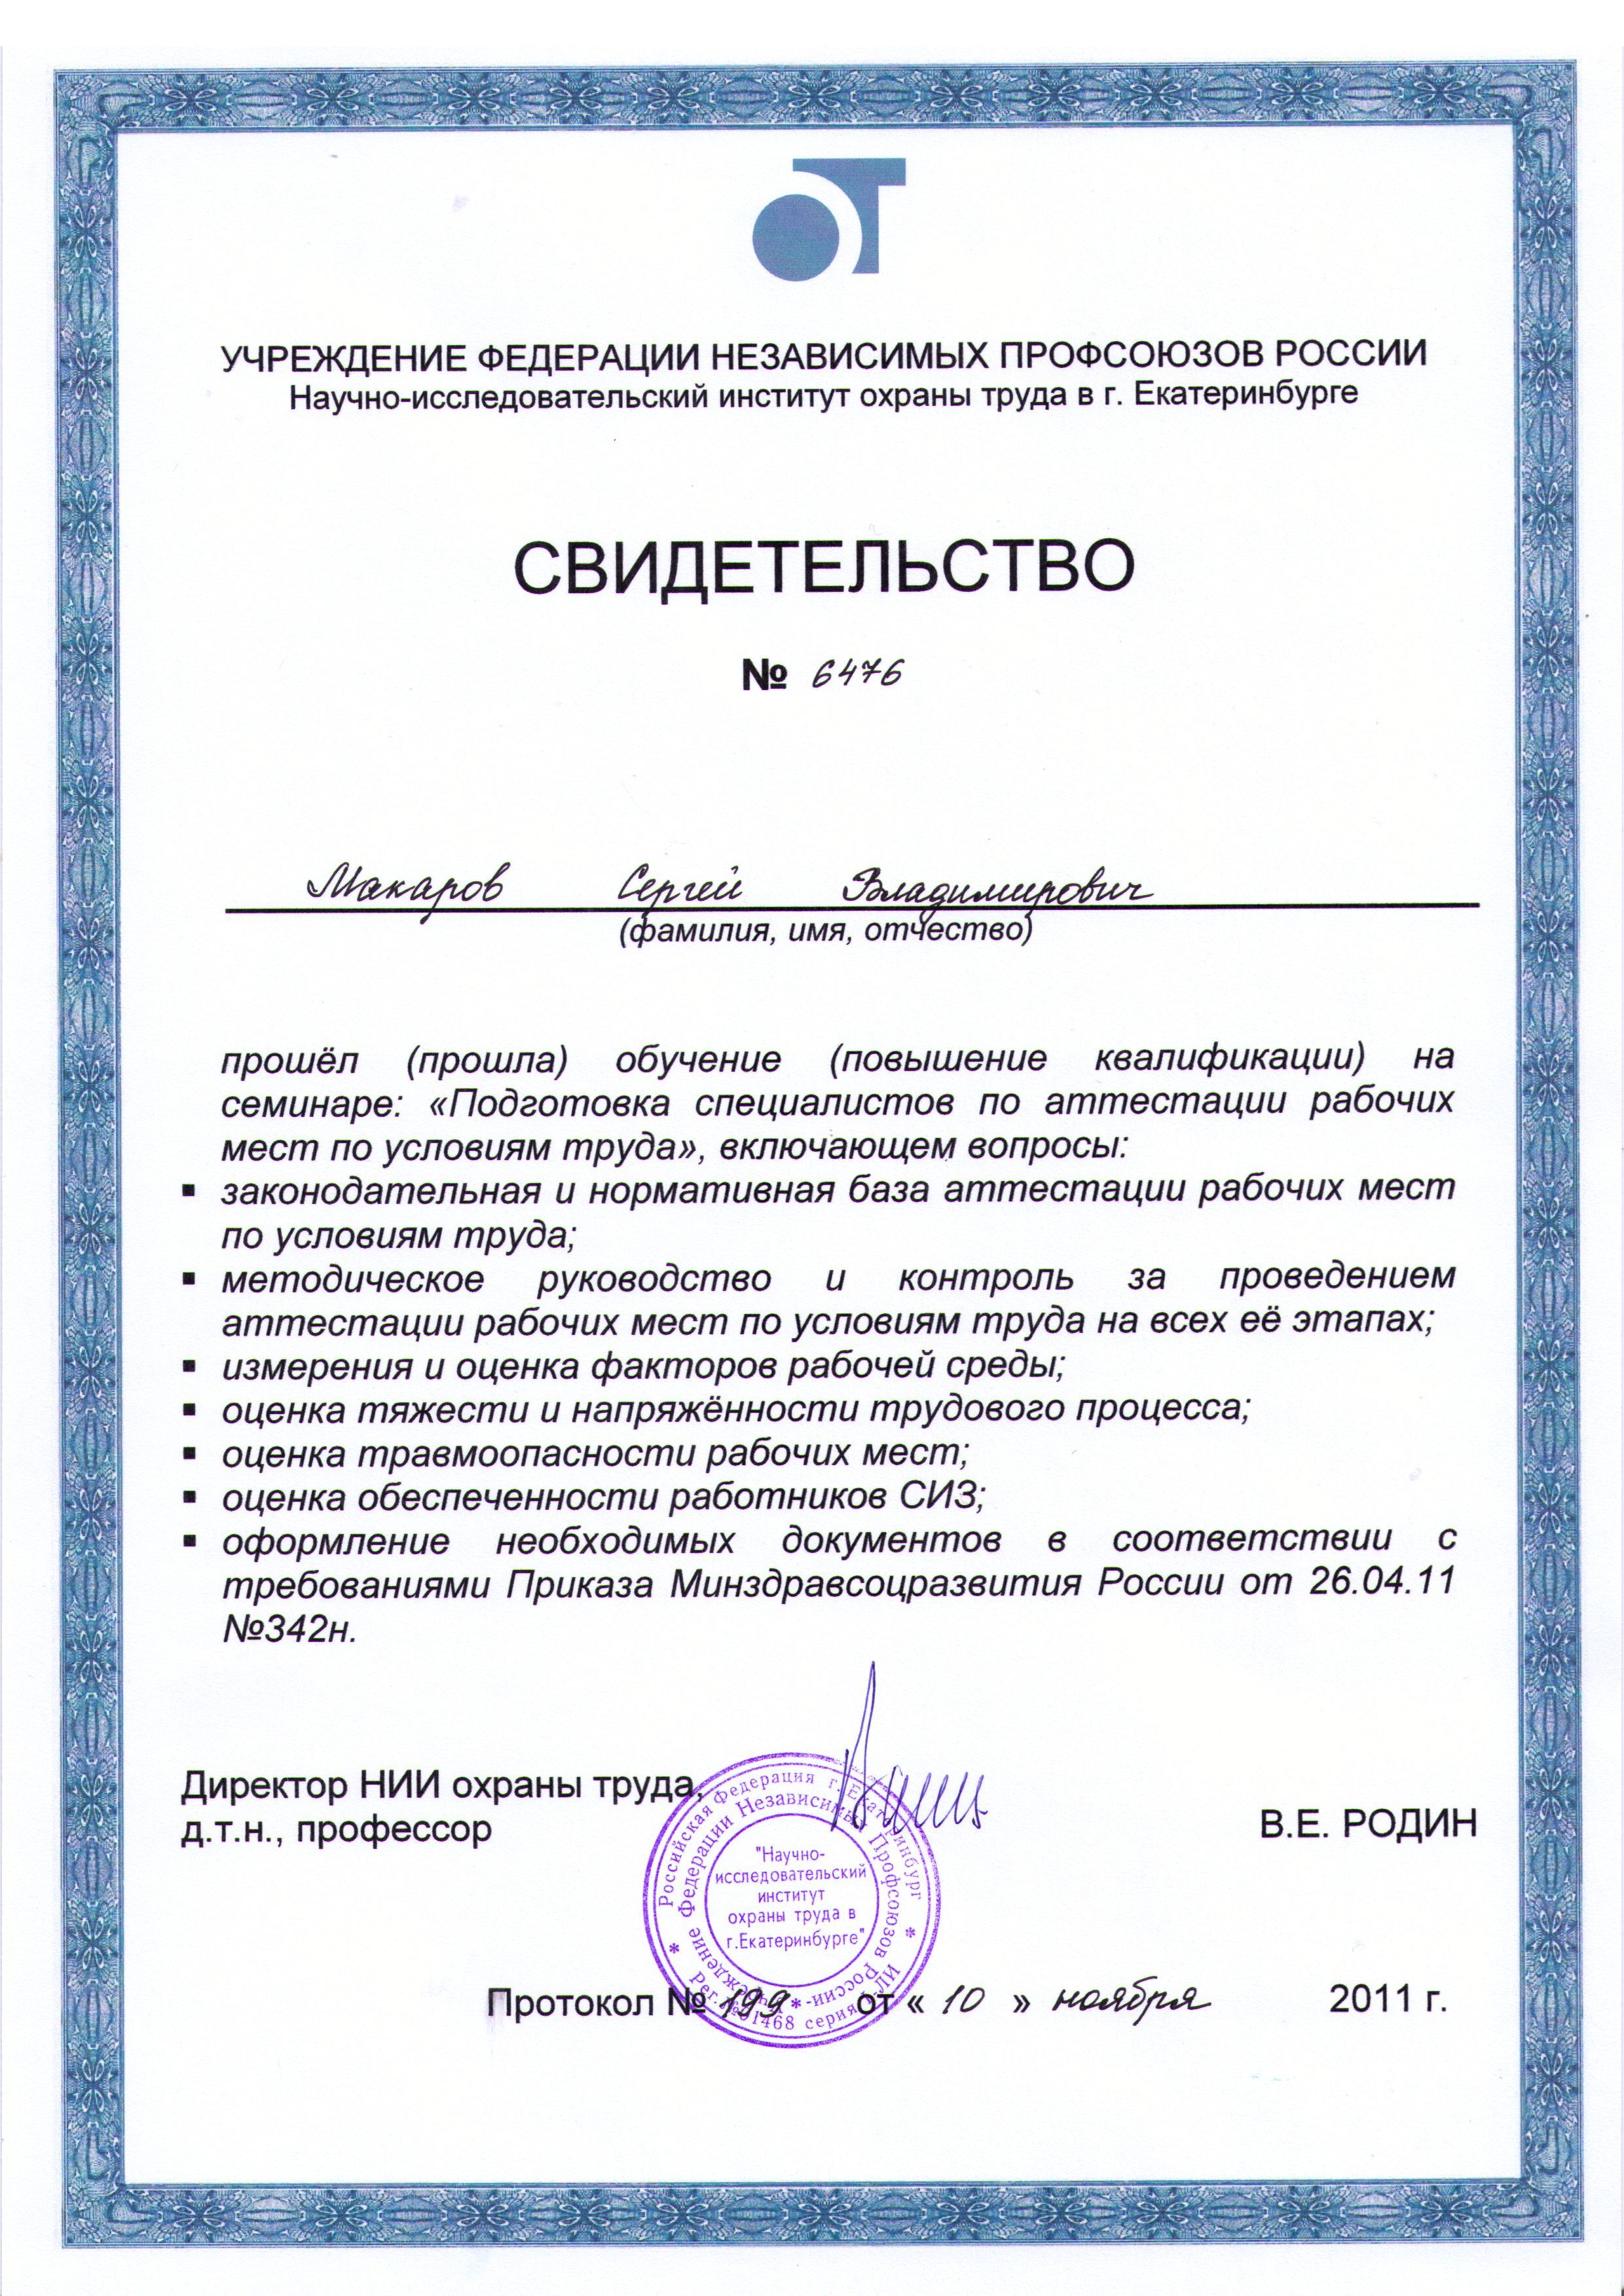 ОТ
УЧРЕЖДЕНИЕ ФЕДЕРАЦИИ НЕЗАВИСИМЫХ ПРОФСОЮЗОВ РОССИИ
Научно-исследовательский институт охраны труда в г. Екатеринбурге
СВИДЕТЕЛЬСТВО
№ 6476
Макаров Сергей Владимирович
(фамилия, имя, отчество)
прошёл (прошла) обучение (повышение квалификации) на
семинаре: «Подготовка специалистов по аттестации рабочих
мест по условиям труда», включающем вопросы:
▪ законодательная и нормативная база аттестации рабочих мест
по условиям труда;
▪ методическое руководство и контроль за проведением
аттестации рабочих мест по условиям труда на всех её этапах;
▪ измерения и оценка факторов рабочей среды;
▪ оценка тяжести и напряжённости трудового процесса;
▪ оценка травмоопасности рабочих мест;
▪ оценка обеспеченности работников СИЗ;
▪ оформление необходимых документов в соответствии с
требованиями Приказа Минздравсоцразвития России от 26.04.11
№342н.
Директор НИИ охраны труда,
д.т.н., профессор
В.Е. РОДИН
Российская Федерация г. Екатеринбург
Учреждение Федерации Независимых Профсоюзов России-
"Научно-
исследовательский
институт
охраны труда в
г.Екатеринбурге"
Рег.№01468 серия
Протокол № 199 от « 10 » ноября 2011 г.